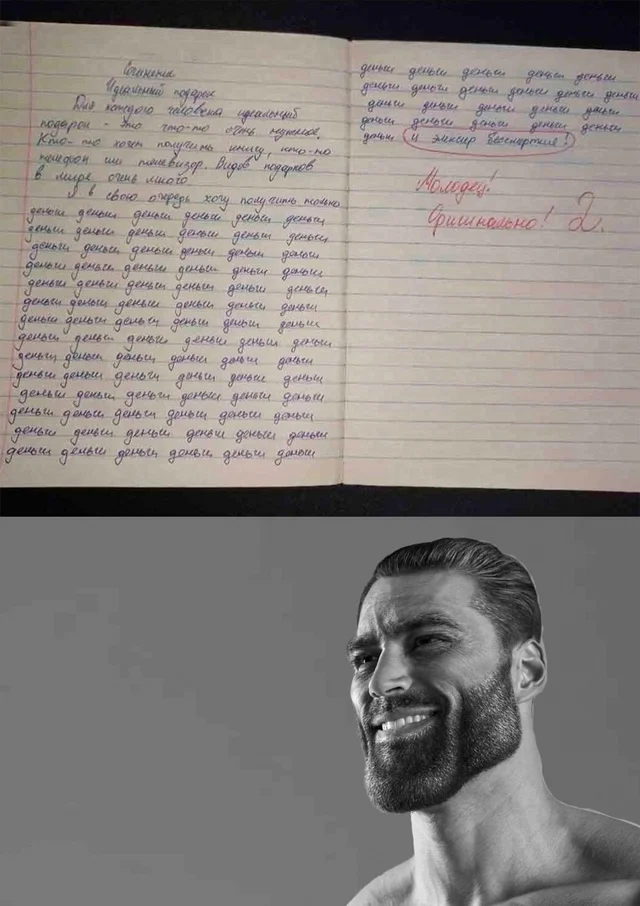 Сочинение
Идеальный подарок
Для каждого человека идеальный
подарок - это что-то очень нужное.
Кто-то хочет получить книгу, кто-то
телефон или телевизор. Видов подарков
в мире очень много
Я в свою очередь хочу получить только
деньги деньги деньги деньги деньги деньги
деньги деньги деньги деньги деньги деньги
деньги деньги деньги деньги деньги деньги
деньги деньги деньги деньги деньги деньги
деньги деньги деньги деньги деньги деньги
деньги деньги деньги деньги деньги деньги
деньги деньги деньги деньги деньги деньги
деньги деньги деньги деньги деньги деньги
деньги деньги деньги деньги деньги деньги
деньги деньги деньги деньги деньги деньги
деньги деньги деньги деньги деньги деньги
деньги деньги деньги деньги деньги деньги
деньги деньги деньги деньги деньги деньги
деньги деньги деньги деньги деньги деньги
деньги деньги деньги деньги деньги
деньги деньги деньги деньги деньги деньги
деньги деньги деньги деньги деньги
деньги деньги деньги деньги деньги
деньги и эликсир бессмертия!
Молодец!
Оригинально! 2.